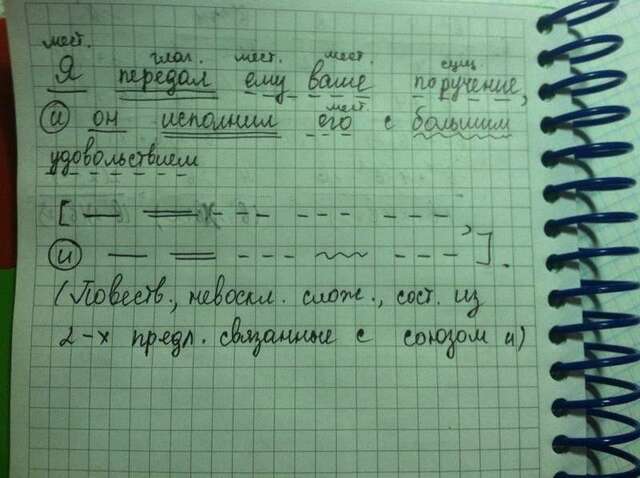 мест.
глаг. мест. мест. сущ
Я передал ему ваше поручение,
мест.
и он исполнил его с большим
удовольствием
[ ,
и ].
(Повеств., невоскл. слож., сост. из
2-х предл. связанные с союзом и)